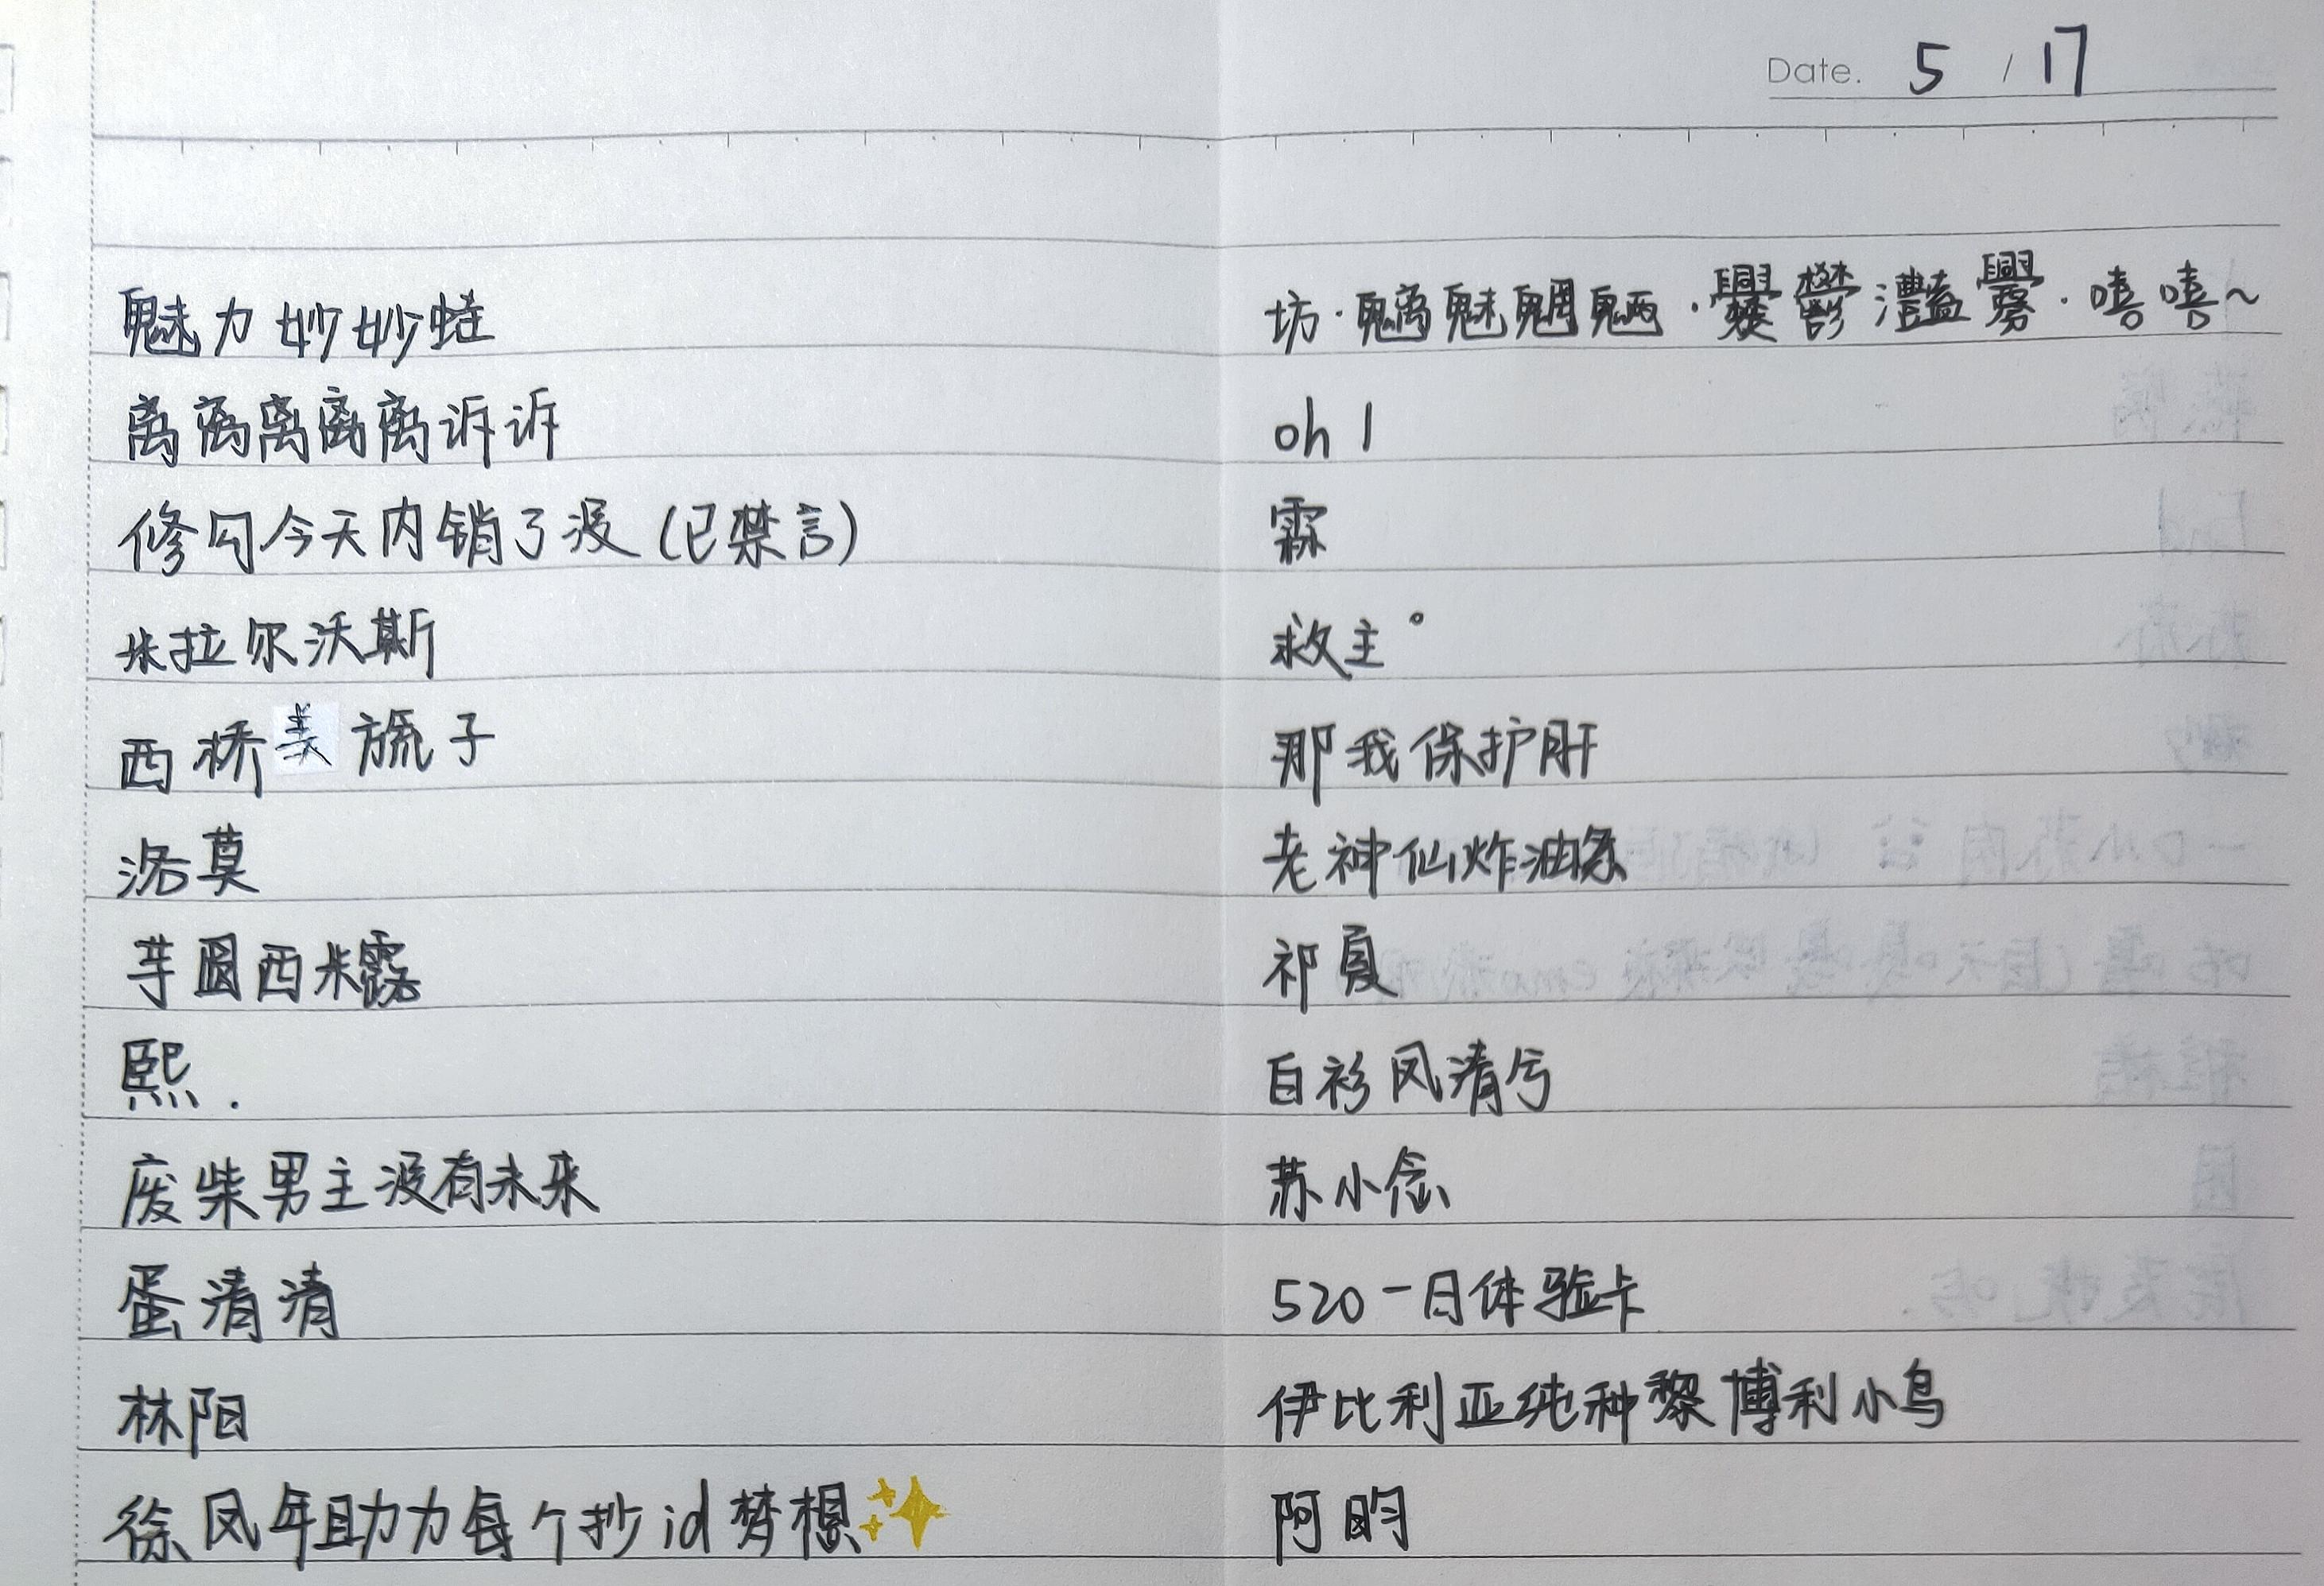 Date. 5 / 17
魅力妙妙蛙
离离离离离诉诉
修勾今天内销了没(已禁言)
米拉尔沃斯
西桥美旒子
洛莫
芋圆西米露
熙.
废柴男主没有未来
蛋清清
林阳
徐凤年助力每个抄id梦想✨
坊·魑魅魍魉··嘻嘻~
oh l
霖
救主°
那我保护肝
老神仙炸油条
祁夏
白衫风清兮
苏小念
520一日体验卡
伊比利亚纯种黎博利小鸟
阿昀